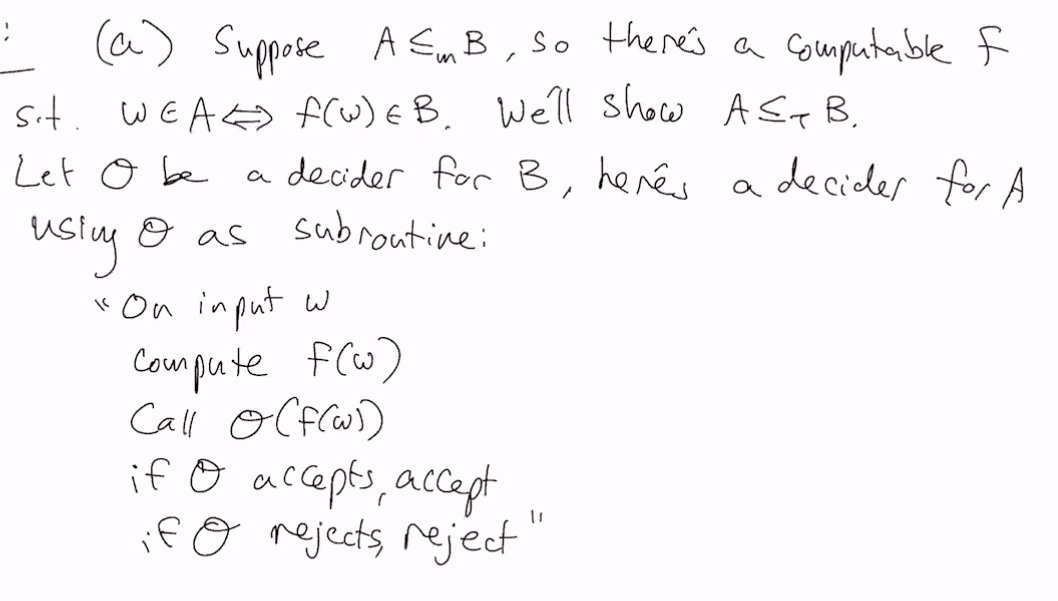 : (a) Suppose A ≤ₘ B, so there's a computable f
s.t. w ∈ A ⇔ f(w) ∈ B. We'll show A ≤_T B.
Let O be a decider for B, here's a decider for A
using O as subroutine:
"On input w
Compute f(w)
Call O(f(w))
if O accepts, accept
if O rejects, reject"